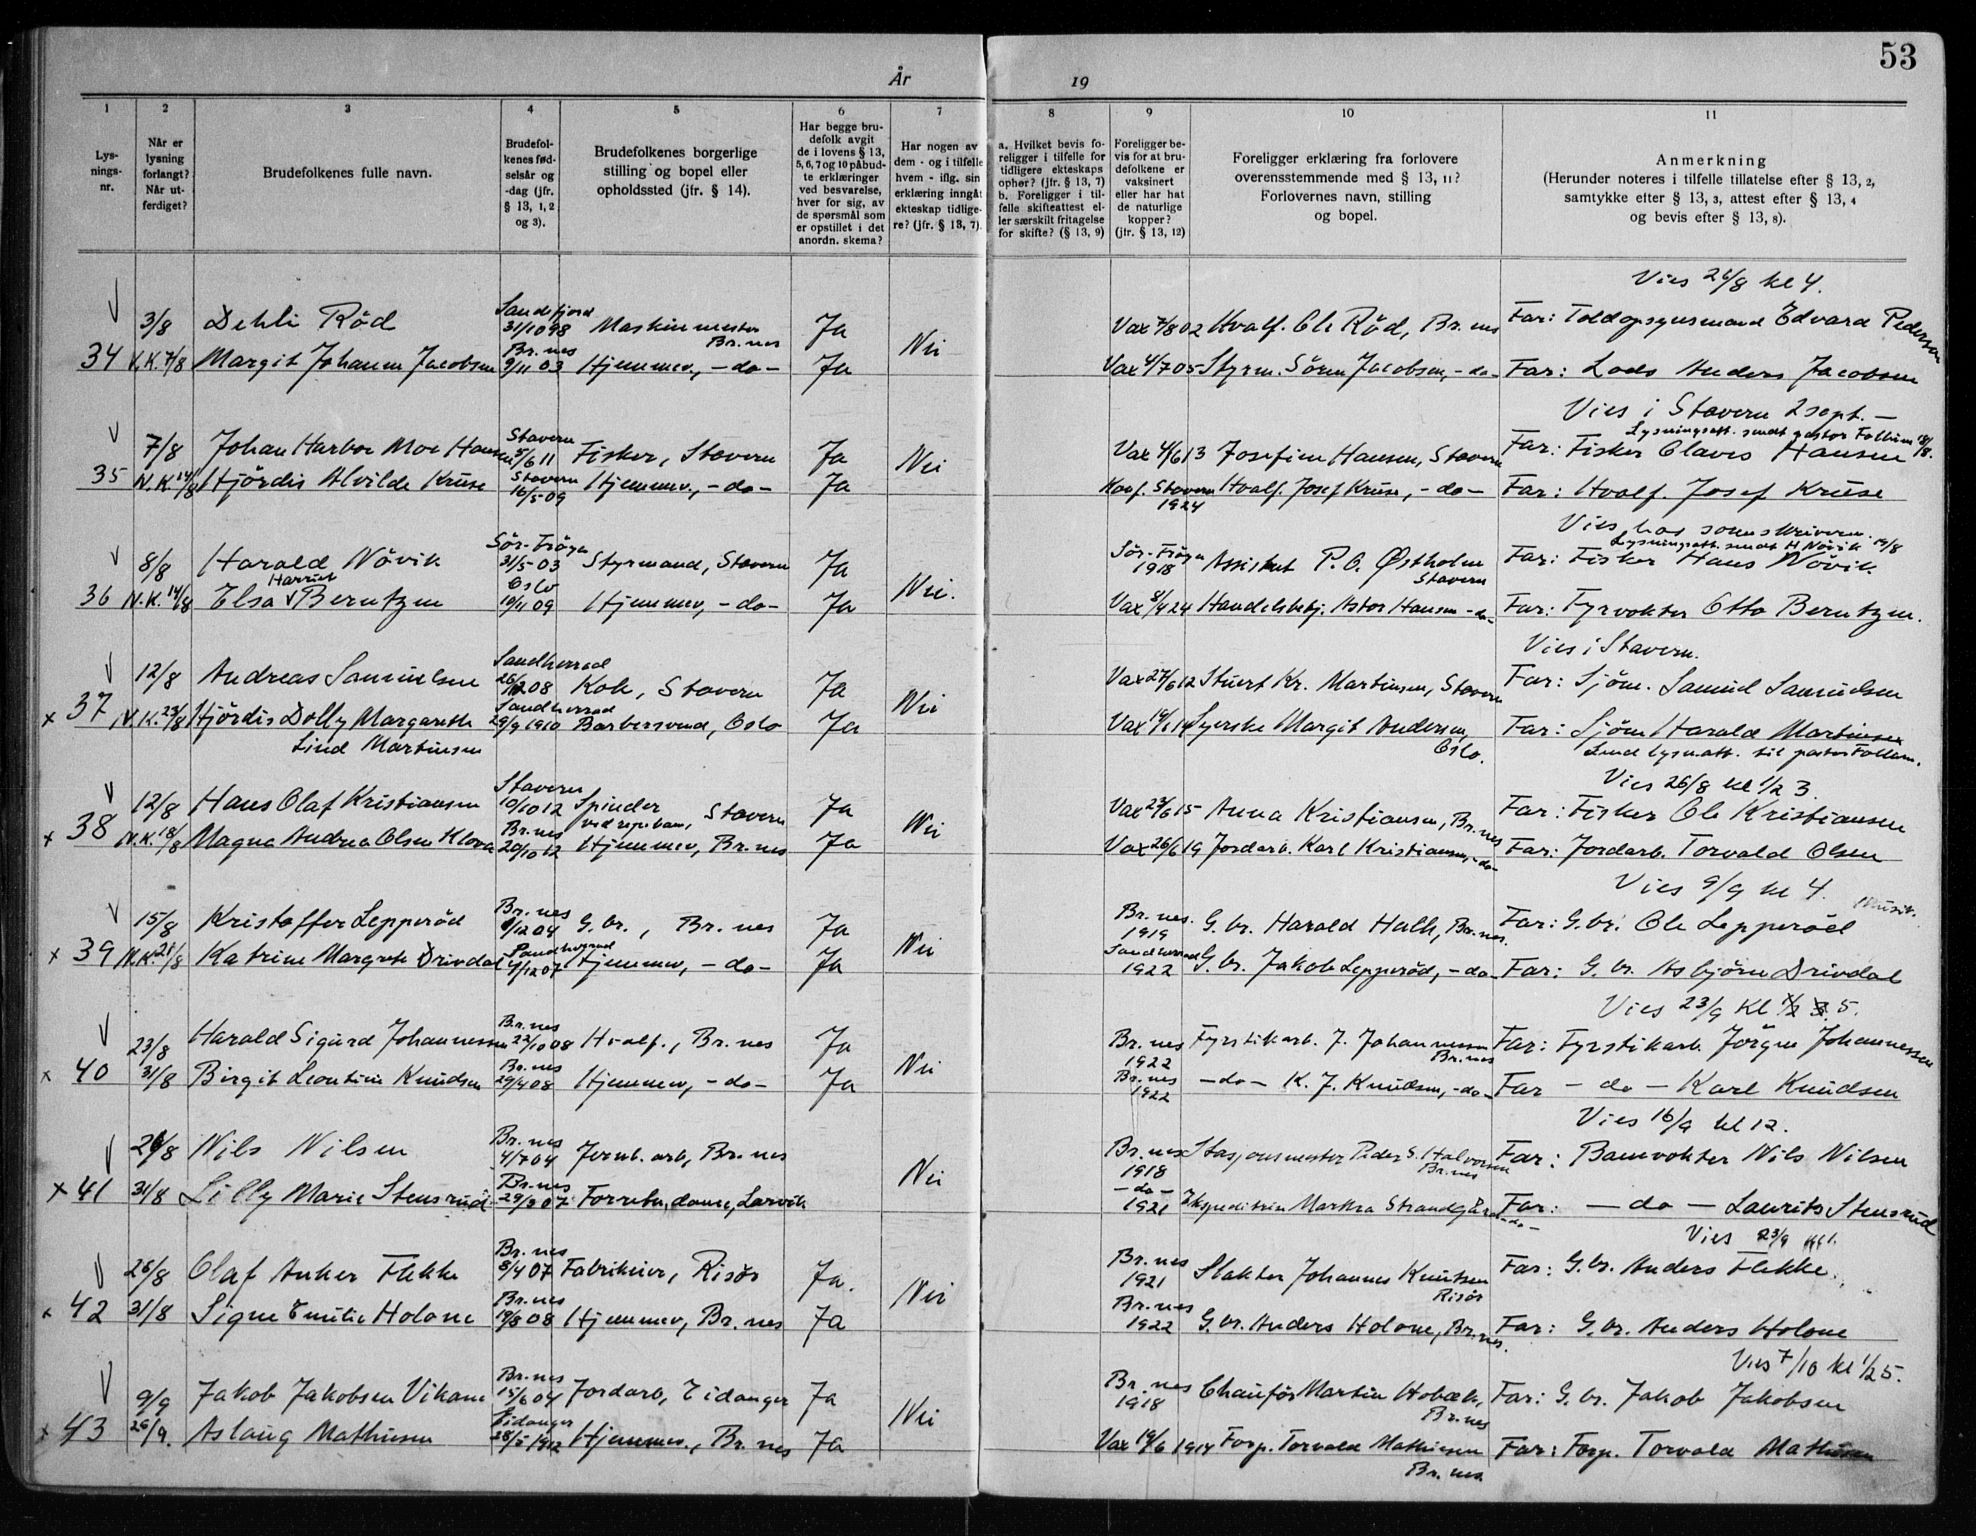 53
År 19
1 2 3 4 5 6 7 8 9 10 11
Lys-
nings-
nr.
Når er
lysning
forlangt?
Når ut-
ferdiget?
Brudefolkenes fulle navn.
Brudefol-
kenes fød-
selsår og
-dag (jfr.
§ 13, 1, 2
og 3).
Brudefolkenes borgerlige
stilling og bopel eller
opholdssted (jfr. § 14).
Har begge bru-
defolk avgit
de i lovens § 13,
5, 6, 7 og 10 påbud-
te erklæringer
ved besvarelse,
hver for sig, av
de spørsmål som
er opstillet i det
anordn. skema?
Har nogen av
dem - og i tilfelle
hvem - iflg. sin
erklæring inngåt
ekteskap tidlige-
re? (jfr. § 13, 7).
a. Hvilket bevis fo-
religger i tilfelle for
tidligere ekteskaps
ophør? (jfr. § 13, 7)
b. Foreligger i til-
felle skifteattest el-
ler særskilt fritagelse
for skifte? (§ 13, 9)
Foreligger be-
vis for at bru-
defolkene er
vaksinert
eller har hat
de naturlige
kopper?
(jfr. § 13, 12)
Foreligger erklæring fra forlovere
overensstemmende med § 13, 11?
Forlovernes navn, stilling
og bopel.
Anmerkning
(Herunder noteres i tilfelle tillatelse efter § 13, 2,
samtykke efter § 13, 3, attest efter § 13, 4
og bevis efter § 13, 8).
Vies 26/8 kl 4.
Sandefjord
3/8 Dehli Röd 31/10 98 Maskinmester Br.nes Ja Nei Vax 7/8 02 Hvalf. Ole Röd, Br.nes Far: Toldopsynsmand Edvard Pedersen
Br.nes
34 N.K. 7/8 Margit Johanne Jacobsen 9/11 03 Hjemmev., -do- Ja Vax 4/7 05 Styrm. Sören Jacobsen, -do- Far: Lods Anders Jacobsen
Vies i Stavern 2 sept. -
Lysningsatt. sendt pastor Follum 18/8.
Stavern
7/8 Johan Harboe Moe Hansen 5/6 11 Fisker, Stavern Ja Nei Vax 4/6 13 Josefine Hansen, Stavern Far: Fisker Claves Hansen
Stavern
35 N.K. 14/8 Hjördis Alvilde Kruse 16/5-09 Hjemmev., -do- Ja Konf. Stavern 1924 Hvalf. Josef Kruse, -do- Far: Hvalf. Josef Kruse
Vies hos sorenskriveren.
Lysningsatt. sendt H Növik 19/8
Sör-Fröya
8/8 Harald Növik 31/5-03 Styrmand, Stavern Ja Nei. Sör-Fröya 1918 Assistent P.O. Østholm Stavern Far: Fisker Hans Növik
Oslo
36 N.K. 14/8 Elsa Harriet Berntzen 19/11 09 Hjemmev., -do- Ja Vax 8/4 24 Handelsbetj. Astor Hansen -do- Far: Fyrvokter Otto Berntzen.
Vies i Stavern.
Sandherred
12/8 Andreas Samuelsen 26/12 08 Kok, Stavern Ja Nei Vax 27/6 12 Stuert Kr. Martinsen, Stavern Far: Sjöm. Samuel Samuelsen
Sandherred
x 37 N.K. 23/8 Hjördis Dolly Margareth 29/9 1910 Barbersvend, Oslo Ja Syerske Margit Andersen, Oslo. Far: Sjöm Harald Martinsen
Lind Martinsen
Send lysn.att. til pastor Follum.
Vies 26/8 kl 1/2 3.
Stavern
12/8 Hans Olaf Kristiansen 10/10 12 Spinder ved repeban, Stavern Ja Nei Vax 23/6 15 Anna Kristiansen, Br.nes Far: Fisker Ole Kristiansen
Br.nes
x 38 N.K. 18/8 Magna Andrea Olsen Klova 20/10 12 Hjemmev, Br.nes Ja Vax 26/6 19 Jordarb. Karl Kristiansen, -do- Far: Jordarb. Torvald Olsen
Vies 9/9 kl 4. Musik.
Br.nes
15/8 Kristoffer Lepperöd 9/12 04 G.br., Br.nes Ja Nei Br.nes. 1919 G.br. Harald Halle, Br.nes. Far: G.br. Ole Lepperöd
Sandherred
x 39 N.K. 21/8 Katrine Margrete Drivdal 4/12 07 Hjemmev., -do- Ja Sandherred 1922 G.br. Jakob Lepperöd, -do- Far: G.br. Asbjörn Drivdal
Vies 23/9 kl 5.
Br.nes
23/8 Harald Sigurd Johannessen 22/10 08 Hvalf., Br.nes Ja Nei Br.nes 1922 Fyrstikarb. J. Johannessen Br.nes Far: Fyrstikarb. Jörgen Johannessen
Br.nes
x 40 31/8 Birgit Leontine Knudsen 29/4 08 Hjemmev, -do- Ja Br.nes 1922 -do- K. J. Knudsen, -do- Far -do- Karl Knudsen
Vies 16/9 kl 12.
Br.nes
26/8 Nils Nilsen 4/7 04 Jernb. arb, Br.nes Nei Br.nes 1918 Stasjonsmester Peder S. Halvorsen Br.nes Far: Banevokter Nils Nilsen
Br.nes
x 41 31/8 Lilly Marie Stensrud 29/3 07 Forretn.dame, Larvik -do- 1921 Ekspeditrise Martha Strandgård -do- Far: -do- Laurits Stensrud
Vies 23/9 kl 1.
Br.nes
26/8 Olaf Anker Flekke 8/4 07 Fabrikeier, Risör Ja. Nei Br.nes 1921 Slakter Johannes Knutsen Risör Far: G.br. Anders Flekke.
Br.nes
x 42 31/8 Signe Emilie Holane 19/8 08 Hjemmev, Br.nes Ja Br.nes 1922 G.br. Anders Holane, Br.nes. Far: G.br. Anders Holane
Vies 7/10 kl 1/2 5.
Br.nes
9/9 Jakob Jakobsen Vikane 15/6 04 Jordarb, Eidanger Ja Nei Br.nes 1918 Chauför Martin Hobæk, Br.nes Far: G.br. Jakob Jakobsen
Eidanger
x 43 26/9. Aslaug Mathisen 28/5 1912 Hjemmev., Br.nes Ja Vax 19/6 1914 Forp. Torvald Mathisen Br.nes Far: Forp. Torvald Mathisen